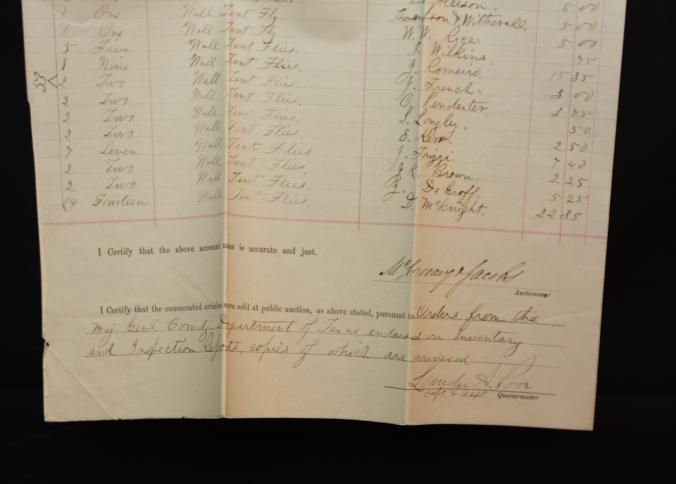 1 One Wall Tent Fly. 5 00
1 One Wall Tent Fly Thompson & Witherall. 5 00
5 Five Wall Tent Flies. W. W. Rice. 5 00
Nine Wall Tent Flies. Wilkins. 75
Two Wall Tent Flies. Romeiro. 15 35
2 Two Wall Tent Flies. French. 3 00
2 Two Wall Tent Flies. 3 75
2 Two Wall Tent Flies. S. Longley. 50
7 Seven Wall Tent Flies E. 2 50
2 Two Wall Tent Flies. 7 40
2 Two Wall Tent Flies. Brown. 2 25
14 Fourteen Wall Tent Flies. De Groff. 5 25
D. McKnight. 22 35
I Certify that the above account sales is accurate and just.
& Jacobs
Auctioneer
I Certify that the enumerated articles were sold at public auction, as above stated, pursuant to Orders from the
Maj. Genl. Comdg Department of Texas endorsed on Inventory
and Inspection Report, copies of which are annexed
A. Poor
Capt. & Asst. Quartermaster